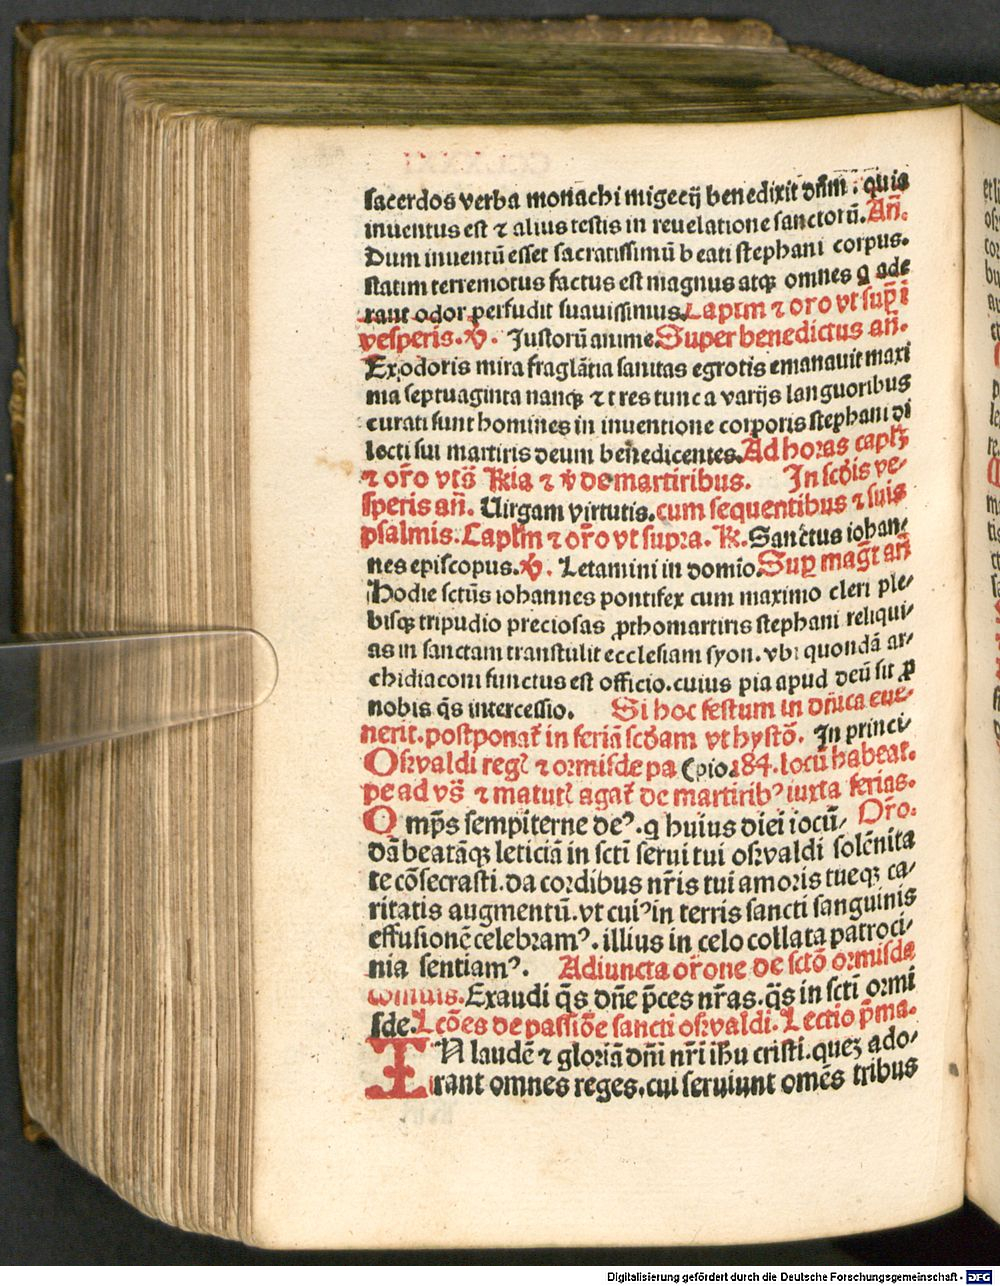 sacerdos verba monachi migecij benedixit dñm. quia
inuentus est ⁊ alius testis in reuelatione sanctorū. Añ.
Dum inuentū esset sacratissimū beati stephani corpus.
statim terremotus factus est magnus atqꝫ omnes q ade
rant odor perfudit suauissimus. Captm ⁊ oro vt sup̄ i
vesperis. V̄. Justorū anime. Super benedictus añ.
Ex odoris mira fraglātia sanitas egrotis emanauit maxi
ma septuaginta nanqꝫ ⁊ tres tunc a varijs languoribus
curati sunt homines in inuentione corporis stephani di
lecti sui martiris deum benedicentes. Ad horas captꝫ
⁊ or̄o vts̄ Ria ⁊ v̄ de martiribus. In scd̄is ve-
speris añ. Uirgam virtutis. cum sequentibus ⁊ suis
psalmis. Captm ⁊ or̄o vt supra. R. Sanctus iohan-
nes episcopus. V̄. Letamini in domīo. Suꝑ magt̄ añ
Hodie sctūs iohannes pontifex cum maximo cleri ple-
bisqꝫ tripudio preciosas ꝓthomartiris stephani reliqui-
as in sanctam transtulit ecclesiam syon. vbi quondā ar-
chidiaconi functus est officio. cuius pia apud deū sit ꝓ
nobis q̄s intercessio. Si hoc festum in dñica eue-
nerit. postponat̄ in feriā scdam vt hystō. In princi-
Oswaldi regꝭ ⁊ ormisde pa (pio. 184. locū habeat.
pe ad vs̄ ⁊ matutꝭ agat̄ de martiribꝰ iuxta ferias.
O mp̄s sempiterne deꝰ. q huius diei iocū- Or̄o.
dā beatāqꝫ leticiā in sctī serui tui oswaldi solēnita
te cōsecrasti. da cordibus nr̄is tui amoris tueqꝫ ca-
ritatis augmentū. vt cuiꝰ in terris sancti sanguinis
effusionē celebramꝰ. illius in celo collata patroci-
nia sentiamꝰ. Adiuncta or̄one de sctō ormisda
Exaudi q̄s dñe p̄ces nr̄as. q̄s in sctī ormi
sde. Lcōes de passiōe sancti oswaldi. Lectio p̄ma.
IN laudē ⁊ gloriā dñi nr̄i ih̄u cristi. quez ado-
rant omnes reges. cui seruiunt omēs tribus
Digitalisierung gefördert durch die Deutsche Forschungsgemeinschaft - DFG